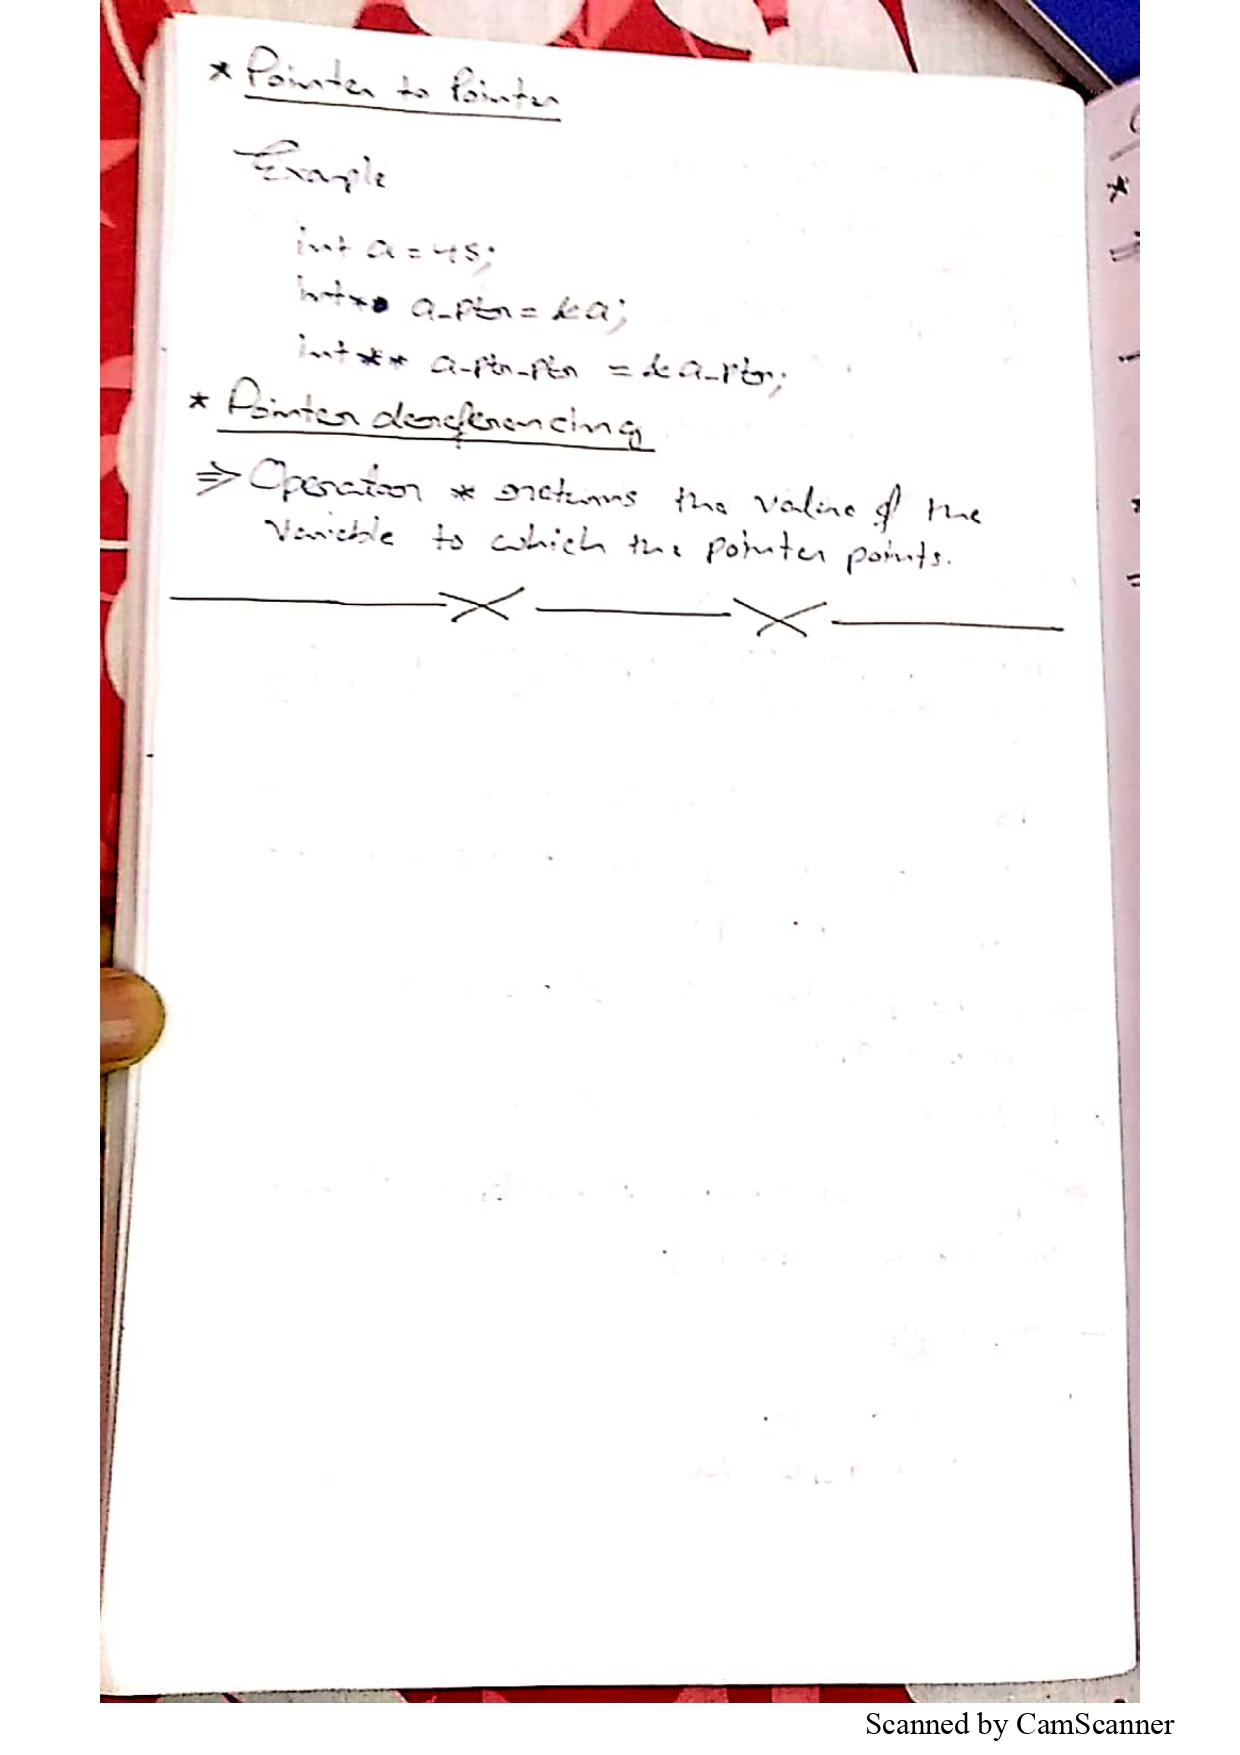 * Pointer to Pointer
Example
int a = 45;
int* a_ptr = &a;
int ** a_ptr_ptr = & a_ptr;
* Pointer dereferencing
⇒ Operator * returns the value of the
variable to which the pointer points.
Scanned by CamScanner